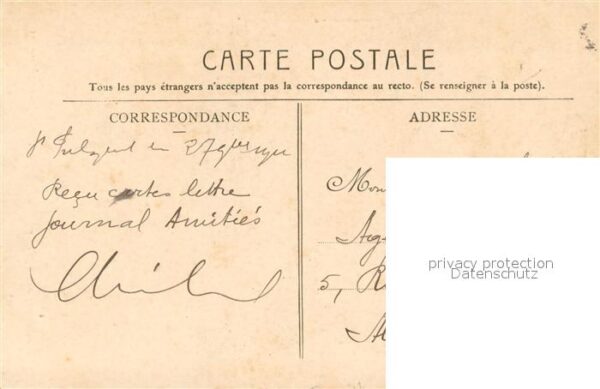 CARTE POSTALE
Tous les pays étrangers n'acceptent pas la correspondance au recto. (Se renseigner à la poste).
CORRESPONDANCE
ADRESSE
en 27
Reçu cartes lettre
Journal Amitiés
Mon
5, R
privacy protection
Datenschutz